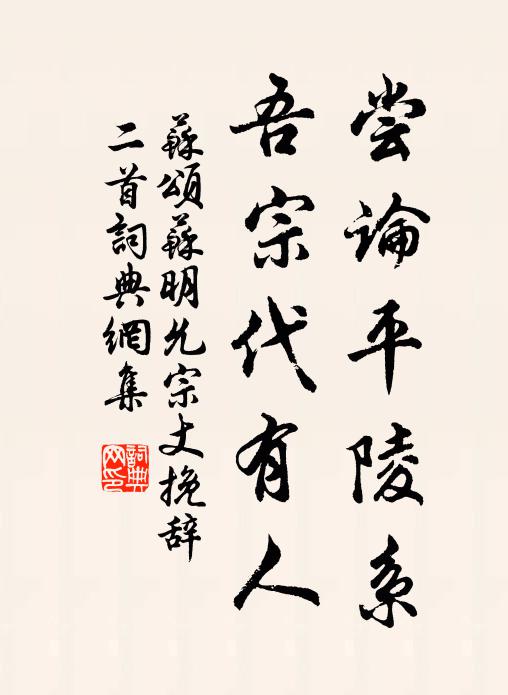 尝論平陵系
吾宗代有人
蘇頌蘇明允宗丈挽辞
二首詞典網集
詞典
网印